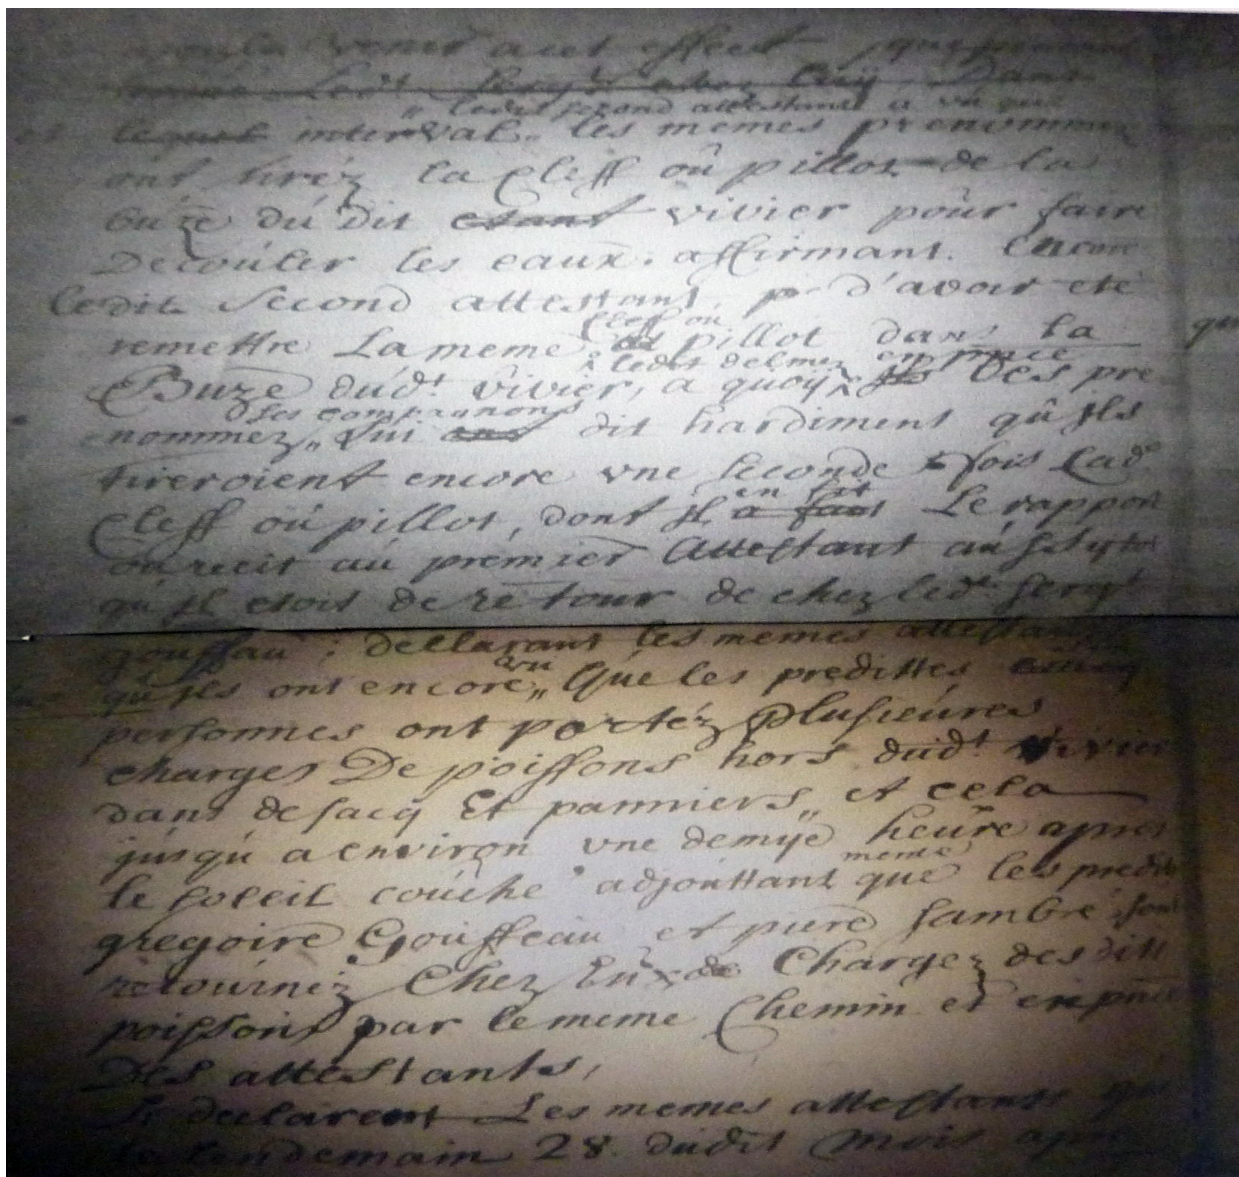 venir a cet effect
ledt sergt chez luÿ Dans
„ ledit second attestant a vu que
et lequel interval „ les memes prenommez
ont tiréz la Cleff oû pillot de la
buze du Dit etant vivier pour faire
Decouler les eaux. affirmant. Encore
ledit Second attestant, d'avoir eté
Cleff ou
remettre La meme pillot dans la
ledit delmez en pnce
Buze dud.t vivier, a quoy Des pre
& ses compagnons
nommez „ Lui ont dit hardiment qu'Jls
tireroient encore vne seconde fois Lad.e
en fit
Cleff oú pillot, dont Jl a fait Le rapport
ou recit aú premier Attestant aússytot
qu'Jl etoit de retour de chez led.t serg.t
gouffau ; declarant les memes attestants
vu
qu'Jls ont encore „ Que les predittes
personnes ont portéz plusieures
charges De poissons hors dud.t vivier
dans de sacq Et panniers „ et cela
júsqu'a environ vne demÿe heûre apres
meme
le soleil coúché adjoúttant que les predits
gregoire Gouffeau et piere sambre sont
retournéz Chez Eux de Chargez desdits
poissons par le meme Chemin et en pnce
Des attestants,
declarent Les memes attestants que
le lendemain 28. dudit Mois